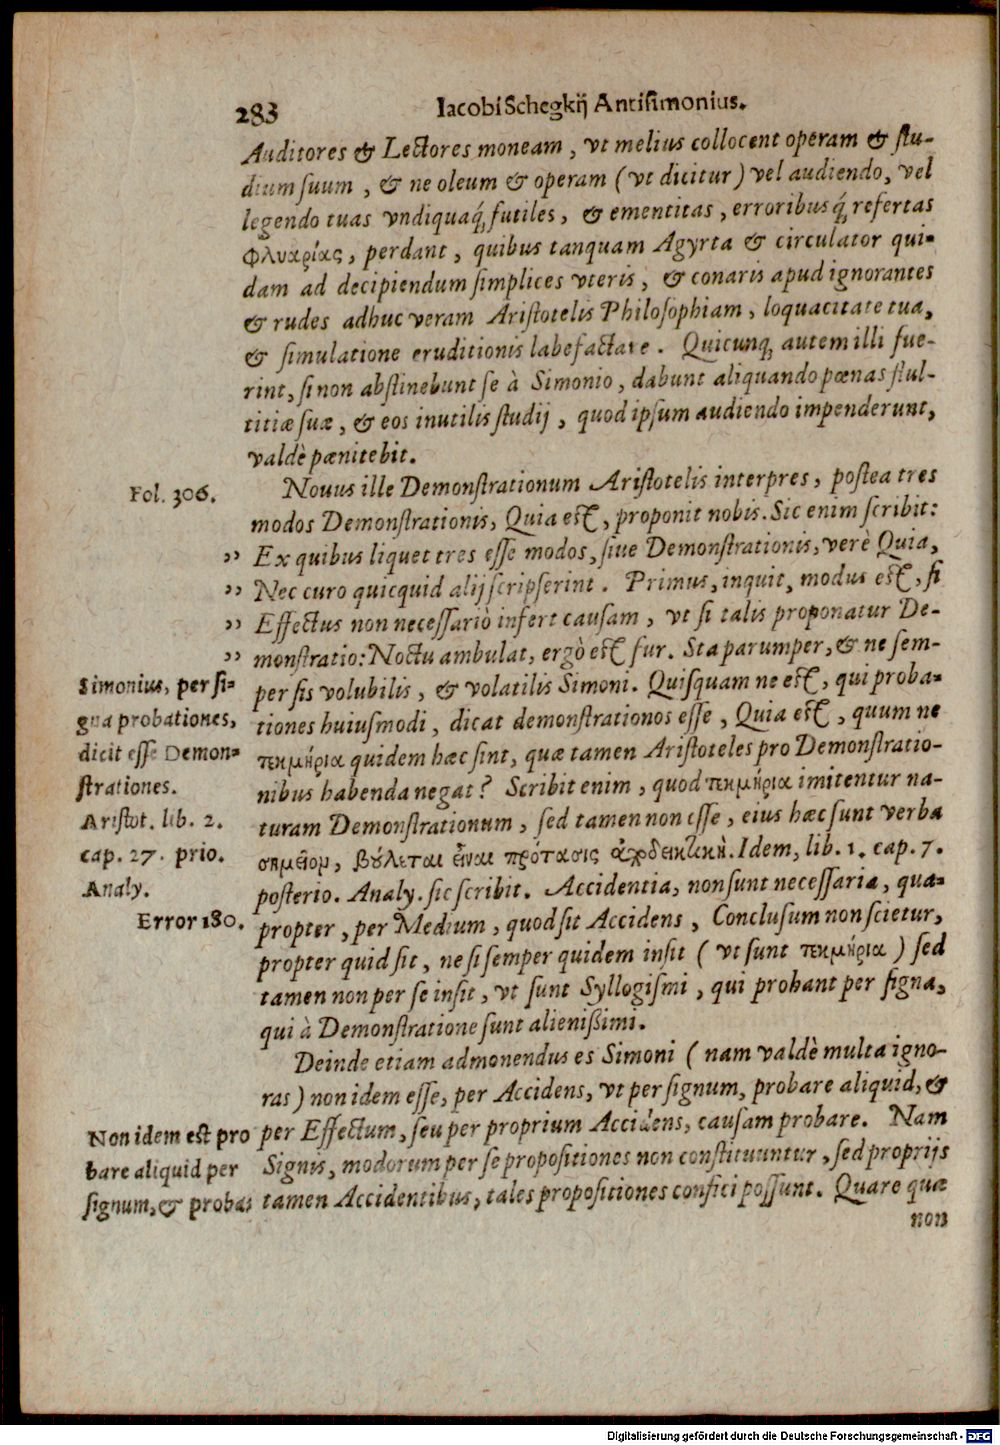 283 Iacobi Schegkij Antisimonius.
Auditores & Lectores moneam, vt melius collocent operam & stu-
dium suum, & ne oleum & operam (vt dicitur) vel audiendo, vel
legendo tuas vndiquaq́; futiles, & ementitas, erroribusq́; refertas
Φλυαρίας, perdant, quibus tanquam Agyrta & circulator qui-
dam ad decipiendum simplices vteris, & conaris apud ignorantes
& rudes adhuc veram Aristotelis Philosophiam, loquacitate tua,
& simulatione eruditionis labefactare. Quicunq; autem illi fue-
rint, si non abstinebunt se à Simonio, dabunt aliquando pœnas stul-
titiæ suæ, & eos inutilis studij, quod ipsum audiendo impenderunt,
valdè pænitebit.
Fol. 306.
Nouus ille Demonstrationum Aristotelis interpres, postea tres
modos Demonstrationis, Quia est, proponit nobis. Sic enim scribit:
,, Ex quibus liquet tres esse modos, siue Demonstrationis, verè Quia,
,, Nec curo quicquid alij scripserint. Primus, inquit, modus est, si
,, Effectus non necessariò infert causam, vt si talis proponatur De-
,, monstratio: Noctu ambulat, ergò est fur. Sta parumper, & ne sem-
per sis volubilis, & volatilis Simoni. Quisquam ne est, qui proba-
tiones huiusmodi, dicat demonstrationos esse, Quia est, quum ne
τεκμήρια quidem hæc sint, quæ tamen Aristoteles pro Demonstratio-
nibus habenda negat? Scribit enim, quod τεκμήρια imitentur na-
turam Demonstrationum, sed tamen non esse, eius hæc sunt verba
σημεῖομ, βύλεται εἶναι πρότασις ἀποδεικτικὴ. Idem, lib. 1. cap. 7.
posterio. Analy. sic scribit. Accidentia, non sunt necessaria, qua-
propter, per Medium, quod sit Accidens, Conclusum non scietur,
propter quid sit, ne si semper quidem insit (vt sunt τεκμήρια) sed
tamen non per se insit, vt sunt Syllogismi, qui probant per signa,
qui à Demonstratione sunt alienißimi.
Simonius, per si-
gna probationes,
dicit esse Demon-
strationes.
Aristot. lib. 2.
cap. 27. prio.
Analy.
Error 180.
Deinde etiam admonendus es Simoni (nam valdè multa igno-
ras) non idem esse, per Accidens, vt per signum, probare aliquid, &
per Effectum, seu per proprium Accidens, causam probare. Nam
Signis, modorum per se propositiones non constituuntur, sed proprijs
tamen Accidentibus, tales propositiones confici possunt. Quare quæ
non
Non idem est pro
bare aliquid per
signum, & probas
Digitalisierung gefördert durch die Deutsche Forschungsgemeinschaft - DFG